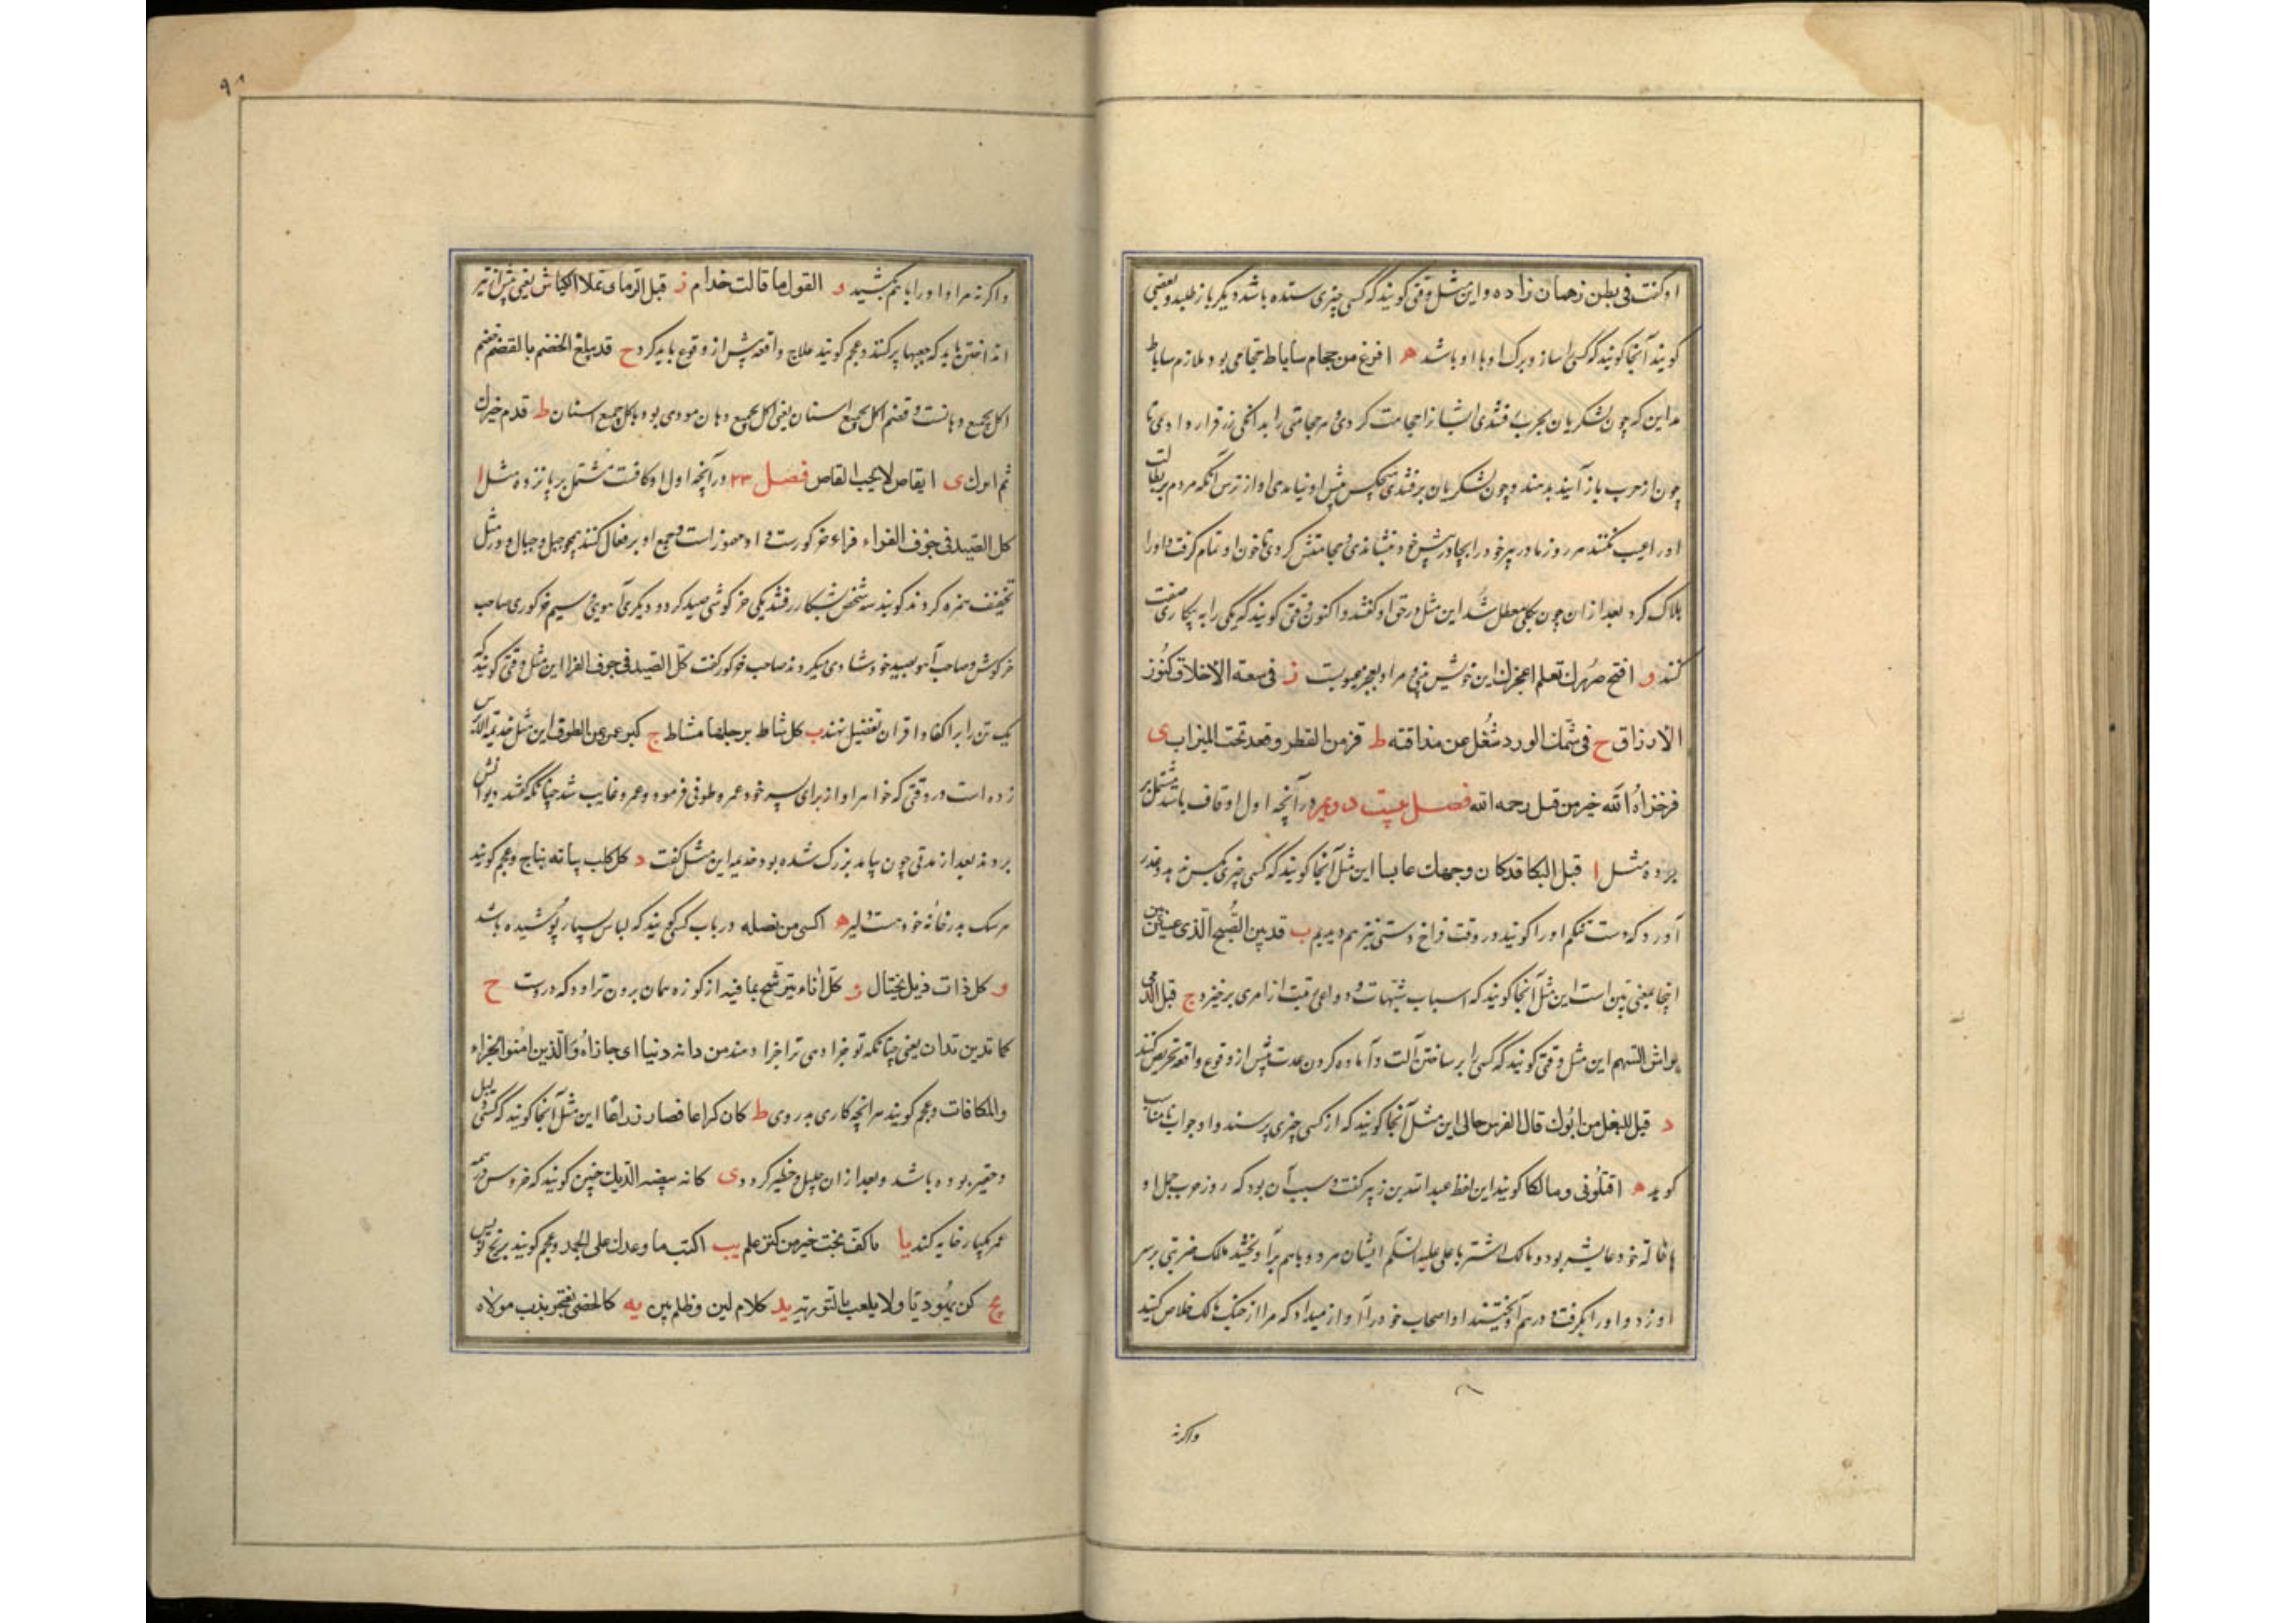 او کنت فی بطن زهمان زاده و این مثل وقتی کویند که کسی چیزی ستده باشد دیکر باز طلبد و بعضی
کویند آنجا کویند که کسی را ساز و برک او با او باشد ه افرغ من حجام ساباط حجامی بود ملازم ساباط
مداین که چون لشکریان بحرب رفتندی ایشانرا حجامت کردی و هر حجامتی را بدانکی زر قرار دادی تا
چون از حرب باز آیند بدهند و چون لشکریان برفتندی هیچکس پیش او نیامدی او از ترس آنکه مردم بر بطالت
او را عیب نکنند هر روز مادر پیر خود را بجا در پیش خود بنشاندی و حجامتش کردی تا خون او تمام کرفت و او را
هلاک کرد بعد از ان چون بکلی معطل شد این مثل در حق او کفتند و اکنون وقتی کویند که یکی را به بیکاری صفت
کنند و افتح صررك تعلم اعجرك این خویش بینی و مراد بعجر عیوبست ز فی سعة الاخلاق کنوز
الارزاق ح فی شمك الورد شغل عن مذاقته ط فر من القطر و قعد تحت المیزاب ی
فر خزاه الله خیر من قتل رحمه الله فصل بیست دویم در آنچه اول او قاف باشد مشتمل بر
بر ده مثل ا قبل البکا قد کان وجهك عابسا این مثل آنجا کویند که کسی چیزی بکس ندهد و عذر
آورد که دست تنکم او را کویند در وقت فراخ دستی نیز هم دیدیم ب قد بین الصبح الذی عینین بین
اینجا بمعنی تبین است این مثل آنجا کویند که اسباب شبهات و دواعی تهمت از امری برخیزد ج قبل الرمی
یراش السهم این مثل وقتی کویند که کسی را بر ساختن آلت و آماده کردن عدت پیش از وقوع واقعه تحریص کنند
د قیل للبغل من ابوك قال الفرس خالی این مثل آنجا کویند که از کسی چیزی پرسند و او جواب نامناسب
کوید ه اقتلونی و مالکا کویند این لفظ عبد الله بن زبیر کفت و سبب آن بود که روز حرب جمل او
با خاله خود عایشه بود و مالک اشتر با علی علیه السلم ایشان هر دو با هم برآویختند مالک ضربتی بر سر
او زد و او را بکرفت و درهم آویختند او اصحاب خود را آواز میداد که مرا از چنک مالک خلاص کنید
واکرنه
۹۰
واکرنه مرا و او را با هم بکشید و القول ما قالت خدام ز قبل الرمای تملا الکنایش یعنی پیش از تیر
انداختن باید که جعبها پر کنند و عجم کویند علاج واقعه پیش از وقوع باید کرد ح قد یبلغ الخضم بالقضم خضم
اکل بجمیع دهانست و قضم اکل بجمیع اسنان یعنی اکل بجمیع دهان مودی بود باکل جمیع اسنان ط قدم خیرك
ثم ایرك ی القاص لا یحب القاص فصل ۲۳ در آنچه اول او کافست مشتمل بر پانزده مثل ا
کل الصید فی جوف الفراء فراء خر کورست و او مهموز است و جمع او بر فعال کنند همچو جبل و جبال و در مثل
تخفیف همزه کردند کویند سه شخص بشکار رفتند یکی خرکوشی صید کرد و دیکری آهویی و سیم خرکوری صاحب
خرکوش و صاحب آهو بصید خود شادی میکردند صاحب خرکور کفت کل الصید فی جوف الفرا این مثل وقتی کویند که
یک تن را بر اکفا و اقران تفضیل نهند ب کل شاط برجلها مشاط ج کبر عمرو عن الطوق این مثل جذیمة الابرش
زده است در وقتی که خواهر او از برای پسر خود عمرو طوقی فرمود و عمرو غایب شد چنانکه کفتند دیوانش
بردند بعد از مدتی چون بیامد بزرک شده بود جذیمه این مثل کفت د کل کلب ببابه نباح و عجم کویند
هر سک بدر خانه خود هست دلیر ه اکسی من بصله در باب کسی کویند که لباس بسیار پوشیده باشد
و کل ذات ذیل تختال ز کل اناء یترشح بما فیه از کوزه همان برون تراود که دروست ح
کما تدین تدان یعنی چنانکه تو جزا دهی ترا جزا دهند من دانه دنیا ای جازاه و الذین امنوا الجزاء
و المکافات و عجم کویند هر آنچه کاری بدروی ط کان کراعا فصار ذراعا این مثل آنجا کویند که کسی ذلیل
و حقیر بوده باشد و بعد از ان جلیل و خطیر کردد ی کانه بیضه الدیك چنین کویند که خروس در همه
عمر یکبار خایه کند یا کف بخت خیر من کر علم یب اکتب ما وعدك علی الجمد و عجم کویند بر یخ نویس
یج کن یهودیا و لا یلعب بالتوریه ید کلام لین و ظلم بین یه کالخصی یفتخر بذب مولاه